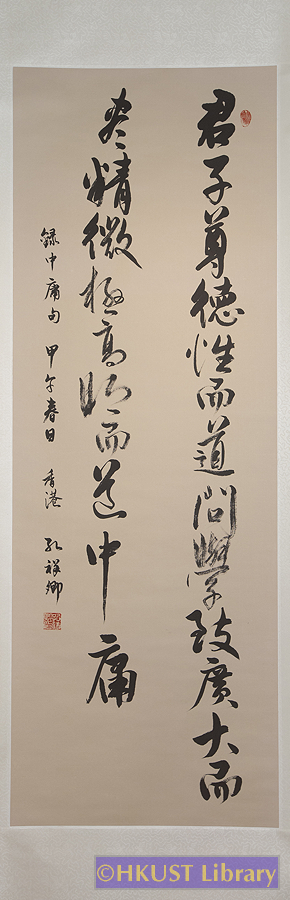 君子尊德性而道問學致廣大而
盡精微極高明而道中庸
錄中庸句 甲午春日 香港 孔祥卿
©HKUST Library